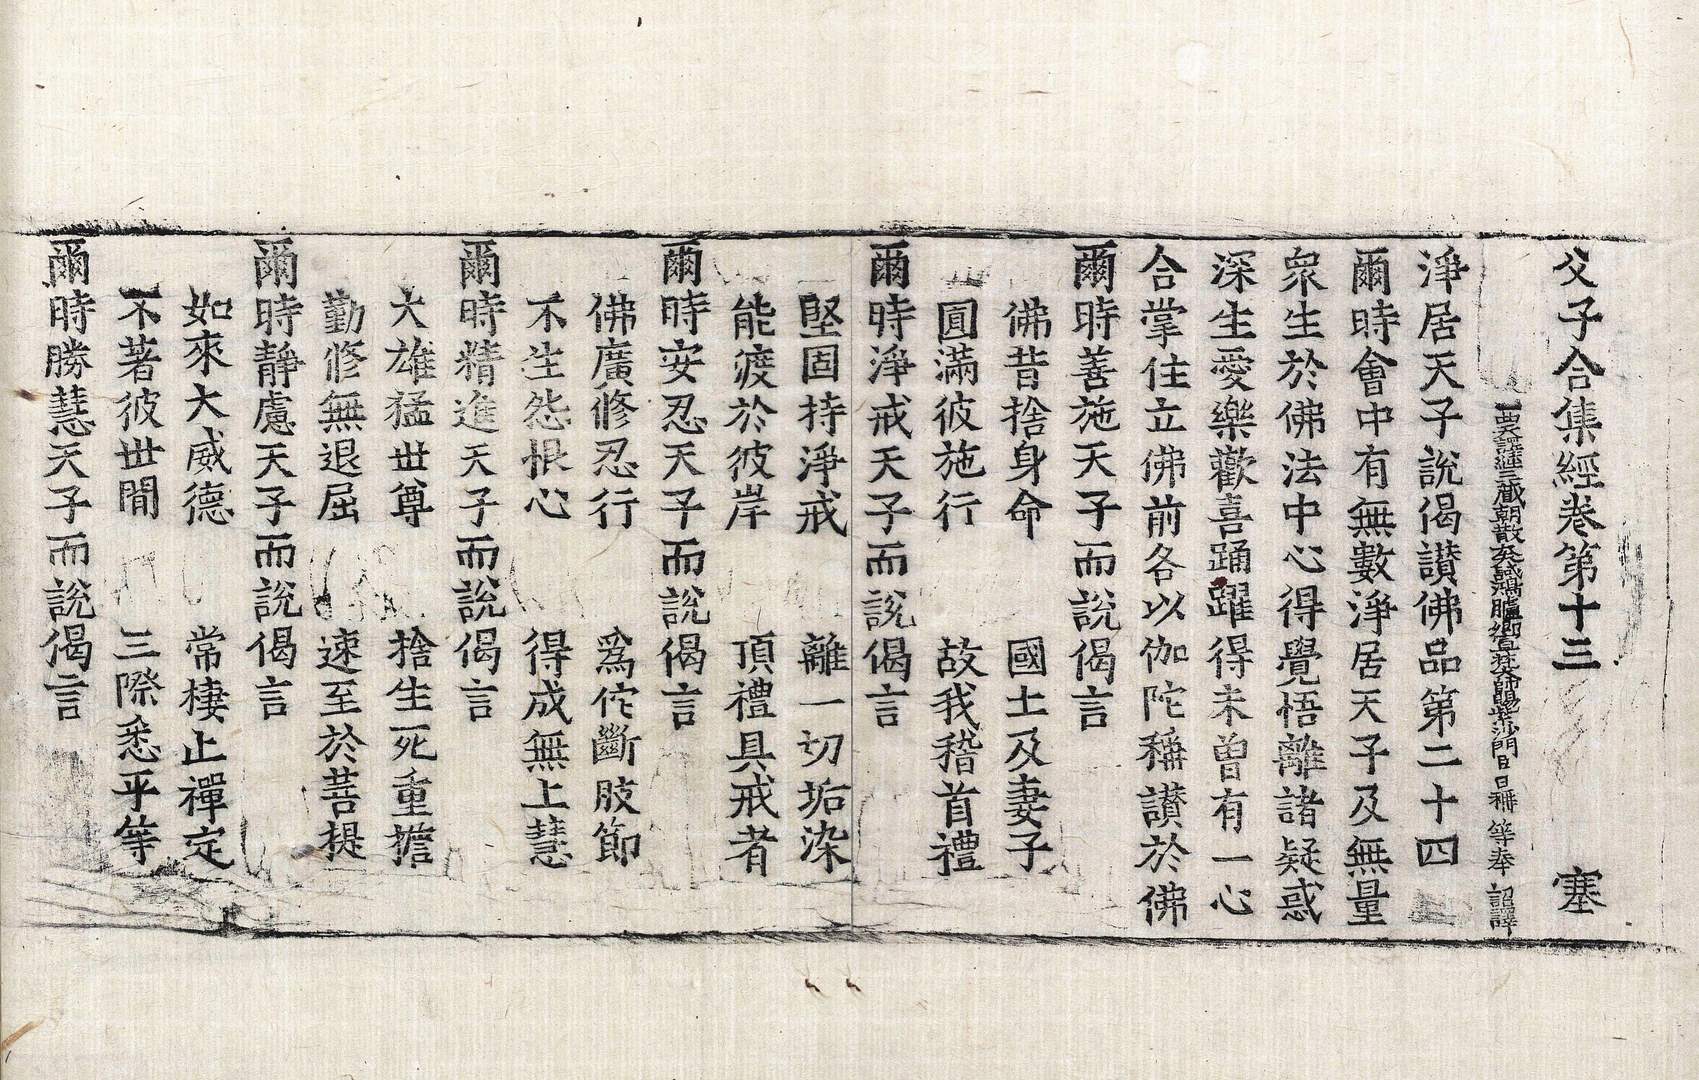 父子合集經卷第十三　塞
西天譯經三藏朝散大夫試鴻臚卿宣梵大師賜紫沙門臣日稱等奉 詔譯
淨居天子說偈讃佛品第二十四
爾時會中有無數淨居天子及無量
衆生於佛法中心得覺悟離諸疑惑
深生愛樂歡喜踊躍得未曾有一心
合掌住立佛前各以伽陀稱讃於佛
爾時善施天子而說偈言
佛昔捨身命　國土及妻子
圓滿彼施行　故我稽首禮
爾時淨戒天子而說偈言
堅固持淨戒　離一切垢染
能渡於彼岸　頂禮具戒者
爾時安忍天子而說偈言
佛廣修忍行　爲佗斷肢節
不生怨恨心　得成無上慧
爾時精進天子而說偈言
大雄猛世尊　捨生死重擔
勤修無退屈　速至於菩提
爾時靜慮天子而說偈言
如來大威德　常棲止禪定
不著彼世間　三際悉平等
爾時勝慧天子而說偈言